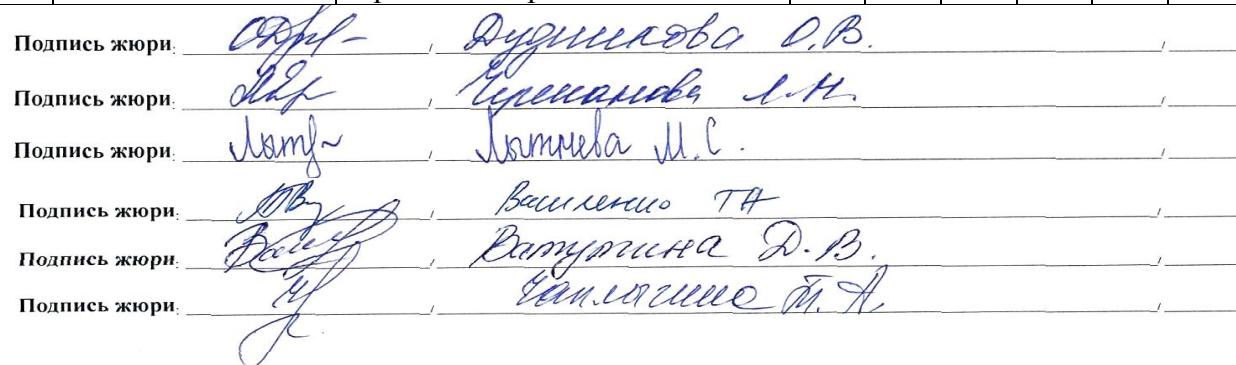 Подпись жюри: / Дудникова О.В. /
Подпись жюри: / Черепанова Л.Н. /
Подпись жюри: / Лытнева М.С. /
Подпись жюри: / Василенко ТА /
Подпись жюри: / Ватутина Д.В. /
Подпись жюри: / Чаплыгина Т.А. /